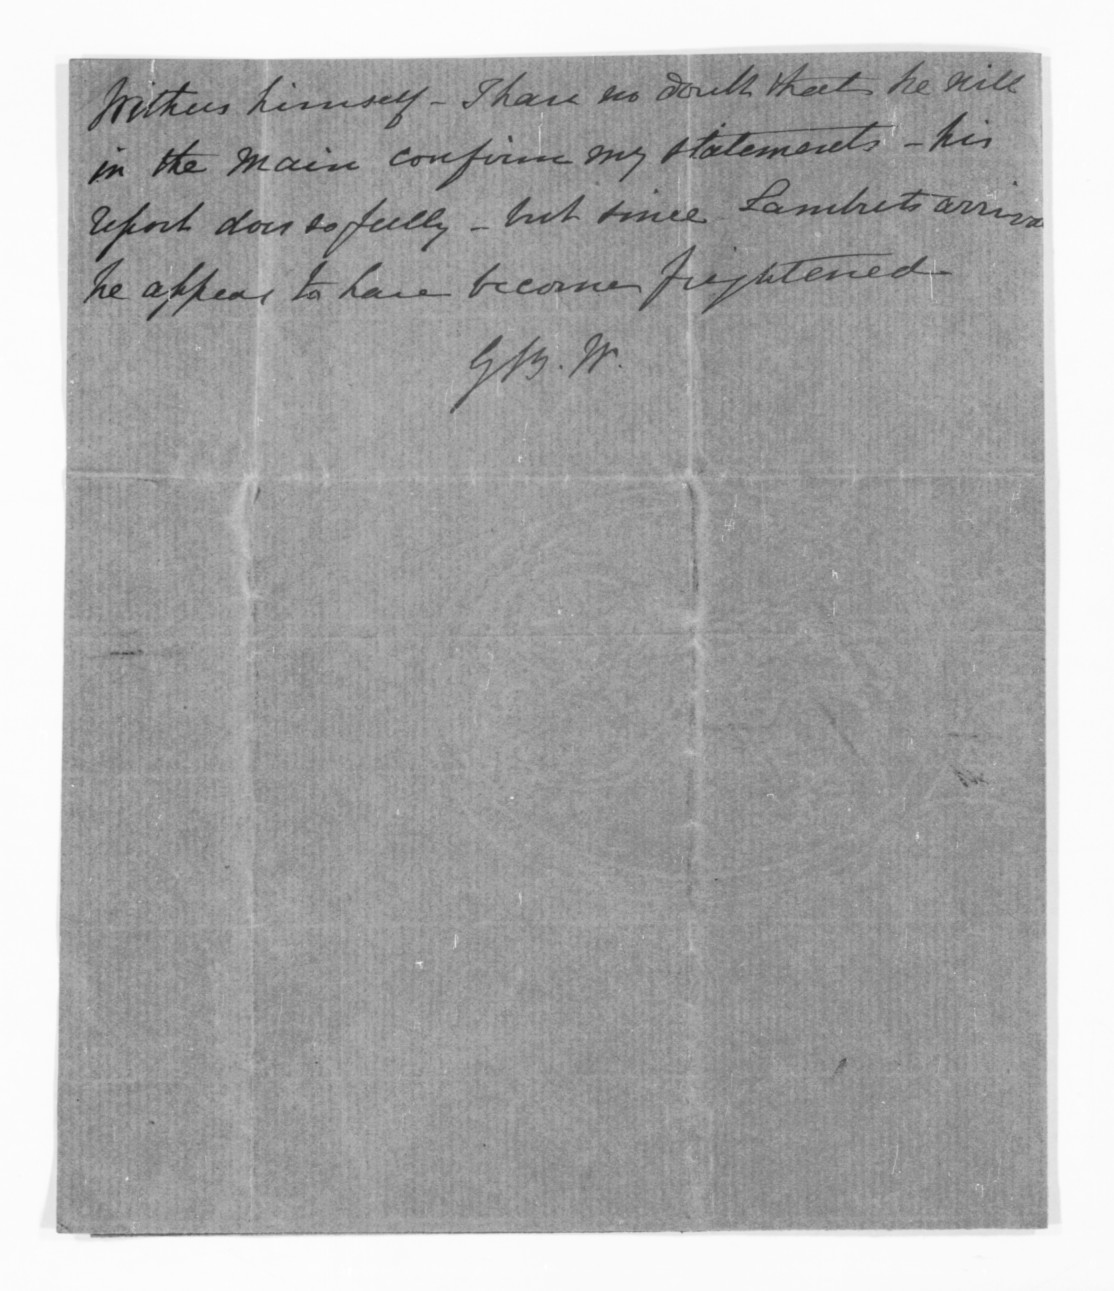 Withers himself – I have no doubt that he will
in the main confirm my statements – his
report does so fully – but since Lambert's arrival
he appears to have become frightened
G.B. W.